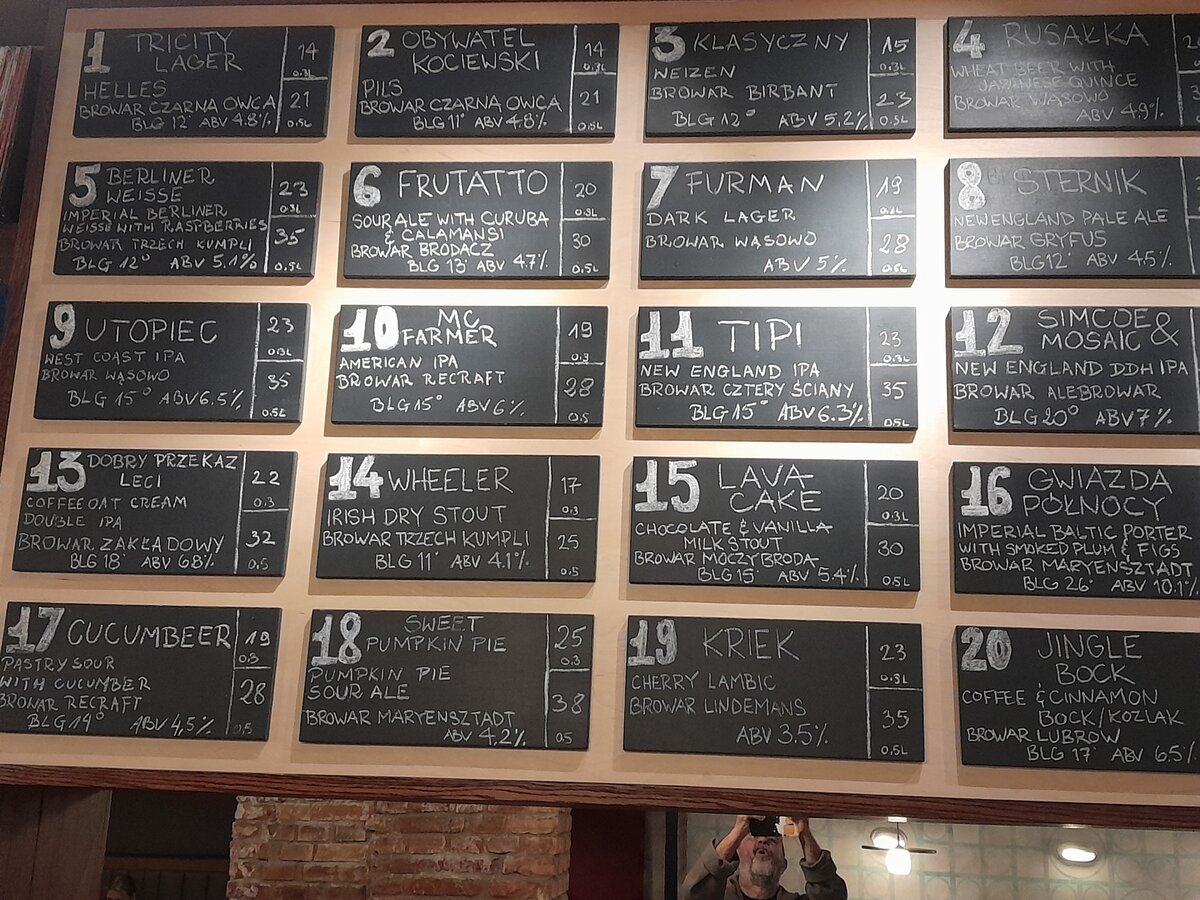 1 TRICITY LAGER
HELLES
BROWAR CZARNA OWCA
BLG 12° ABV 4.8%
14
0.3L
21
0.5L
2 OBYWATEL KOCIEWSKI
PILS
BROWAR CZARNA OWCA
BLG 11° ABV 4.8%
14
0.3L
21
0.5L
3 KLASYCZNY
WEIZEN
BROWAR BIRBANT
BLG 12° ABV 5,2%
15
0.3L
23
0.5L
4 RUSAŁKA
WHEAT BEER WITH
JAPANESE QUINCE
BROWAR WĄSOWO
ABV 4.9%
5 BERLINER
WEISSE
IMPERIAL BERLINER
WEISSE WITH RASPBERRIES
BROWAR TRZECH KUMPLI
BLG 12° ABV 5.1%
23
0.3L
35
0.5L
6 FRUTATTO
SOUR ALE WITH CURUBA
& CALAMANSI
BROWAR BRODACZ
BLG 13° ABV 4.7%
20
0.3L
30
0.5L
7 FURMAN
DARK LAGER
BROWAR WĄSOWO
ABV 5%
19
0.3L
28
0.5L
8 STERNIK
NEW ENGLAND PALE ALE
BROWAR GRYFUS
BLG 12° ABV 4.5%
9 UTOPIEC
WEST COAST IPA
BROWAR WĄSOWO
BLG 15° ABV 6.5%
23
0.3L
35
0.5L
10 MC
FARMER
AMERICAN IPA
BROWAR RECRAFT
BLG 15° ABV 6%
19
0.3
28
0.5
11 TIPI
NEW ENGLAND IPA
BROWAR CZTERY ŚCIANY
BLG 15° ABV 6.3%
23
0.3L
35
0.5L
12 SIMCOE &
MOSAIC
NEW ENGLAND DDH IPA
BROWAR ALEBROWAR
BLG 20° ABV 7%
13 DOBRY PRZEKAZ
LECI
COFFEE OAT CREAM
DOUBLE IPA
BROWAR ZAKŁADOWY
BLG 18° ABV 6.8%
22
0.3
32
0.5
14 WHEELER
IRISH DRY STOUT
BROWAR TRZECH KUMPLI
BLG 11° ABV 4.1%
17
0.3
25
0.5
15 LAVA
CAKE
CHOCOLATE & VANILLA
MILK STOUT
BROWAR MOCZYBRODA
BLG 15° ABV 5.4%
20
0.3L
30
0.5L
16 GWIAZDA
PÓŁNOCY
IMPERIAL BALTIC PORTER
WITH SMOKED PLUM & FIGS
BROWAR MARYENSZTADT
BLG 26° ABV 10.1%
17 CUCUMBEER
PASTRY SOUR
WITH CUCUMBER
BROWAR RECRAFT
BLG 14° ABV 4,5%
19
0.3
28
0.5
18 SWEET
PUMPKIN PIE
PUMPKIN PIE
SOUR ALE
BROWAR MARYENSZTADT
ABV 4,2%
25
0.3
38
0.5
19 KRIEK
CHERRY LAMBIC
BROWAR LINDEMANS
ABV 3.5%
23
0.3L
35
0.5L
20 JINGLE
BOCK
COFFEE & CINNAMON
BOCK/KOZLAK
BROWAR LUBROW
BLG 17° ABV 6.5%